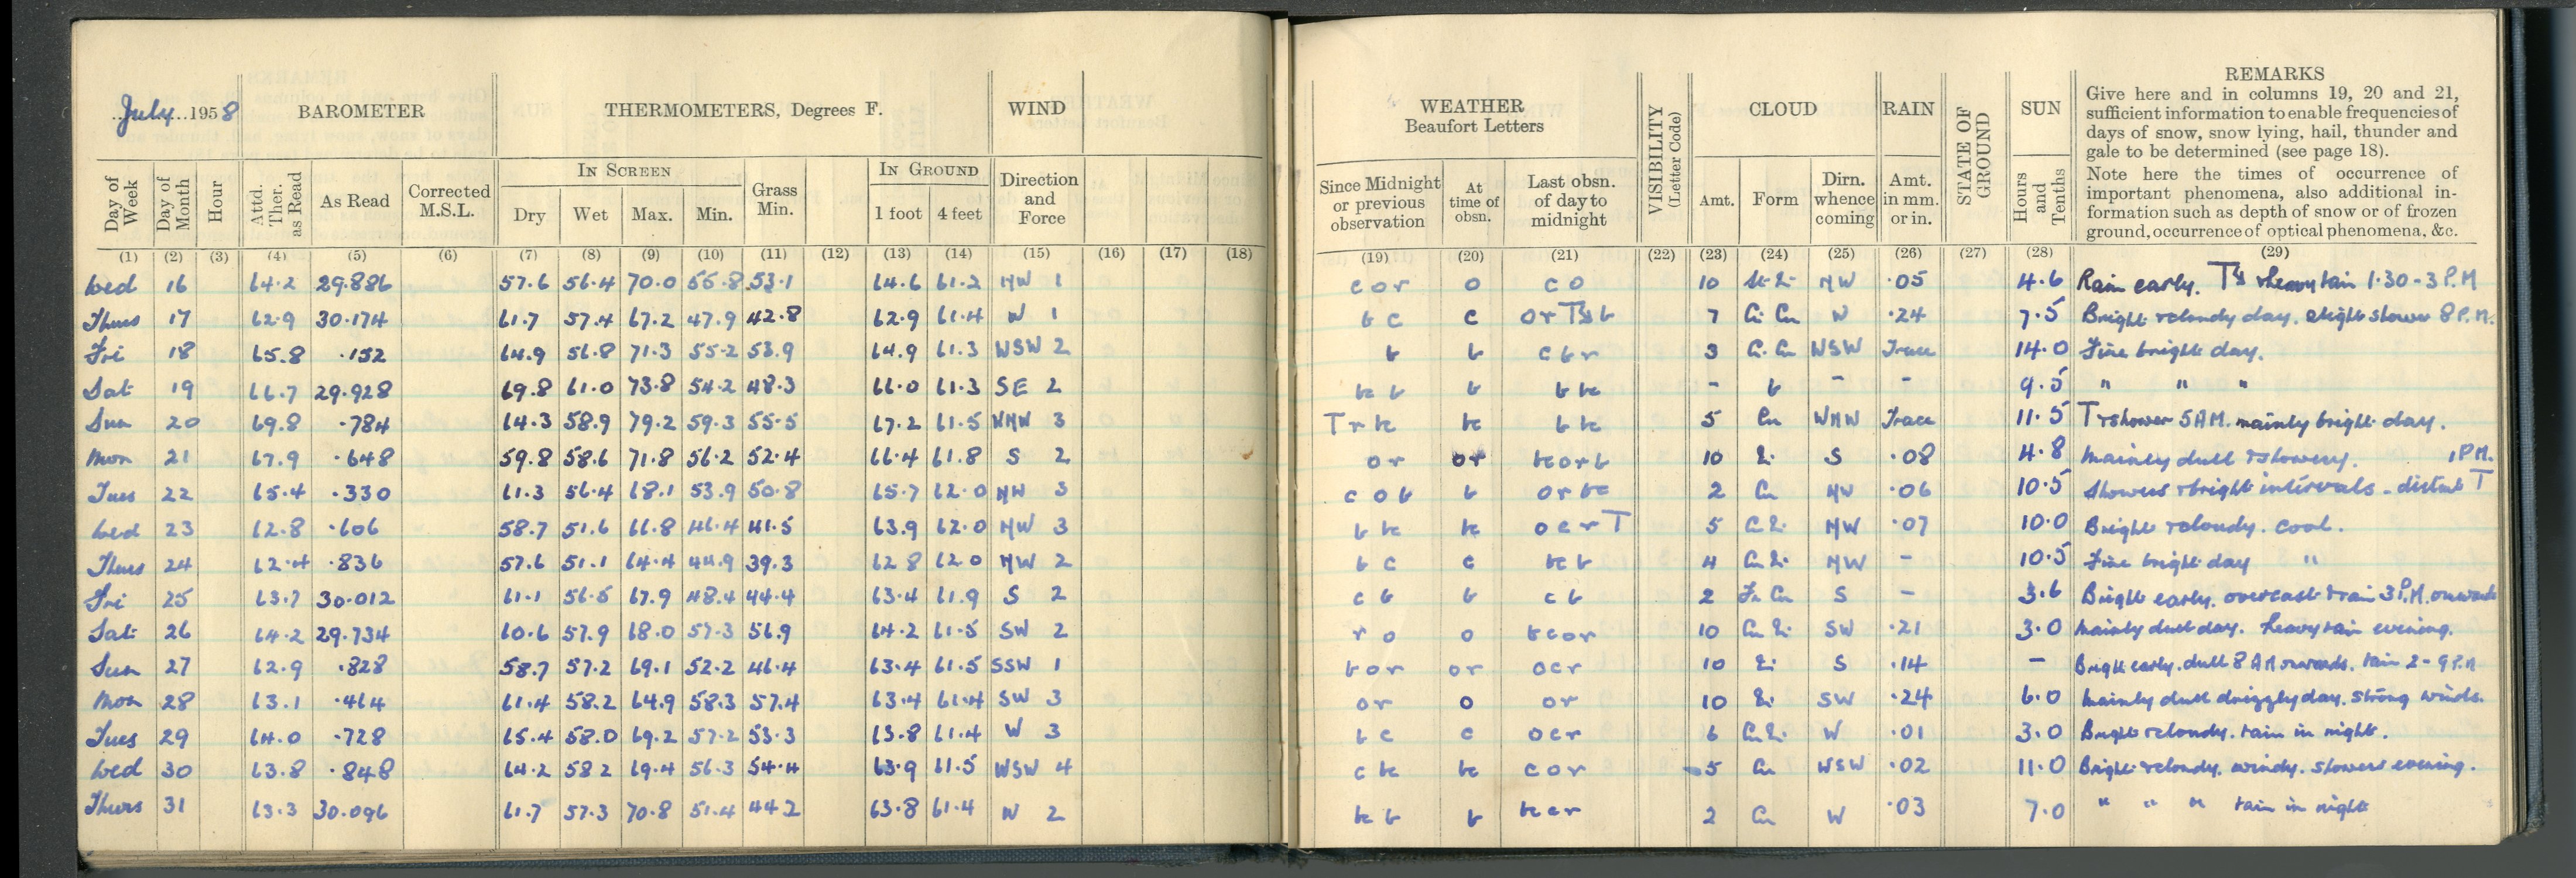 July 1958 BAROMETER THERMOMETERS, Degrees F. WIND
IN SCREEN IN GROUND
Day of Week Day of Month Hour Attd. Ther. as Read As Read Corrected M.S.L. Dry Wet Max. Min. Grass Min. 1 foot 4 feet Direction and Force
(1) (2) (3) (4) (5) (6) (7) (8) (9) (10) (11) (12) (13) (14) (15) (16) (17) (18)
Wed 16 64.2 29.886 57.6 56.4 70.0 55.8 53.1 64.6 61.2 NW 1
Thurs 17 62.9 30.174 61.7 57.4 67.2 47.9 42.8 62.9 61.4 N 1
Fri 18 65.8 .152 64.9 56.8 71.3 55.2 53.9 64.9 61.3 WSW 2
Sat 19 66.7 29.928 69.8 61.0 73.8 54.2 48.3 66.0 61.3 SE 2
Sun 20 69.8 .784 64.3 58.9 79.2 59.3 55.5 67.2 61.5 WNW 3
Mon 21 67.9 .648 59.8 58.6 71.8 56.2 52.4 66.4 61.8 S 2
Tues 22 65.4 .330 61.3 56.4 68.1 53.9 50.8 65.7 62.0 NW 3
Wed 23 62.8 .606 58.7 51.6 66.8 46.4 41.5 63.9 62.0 NW 3
Thurs 24 62.4 .836 57.6 51.1 64.4 44.9 39.3 62 8 62 0 NW 2
Fri 25 63.7 30.012 61.1 56.5 67.9 48.4 44.4 63.4 61.9 S 2
Sat 26 64.2 29.734 60.6 57.9 68.0 57.3 56.9 64.2 61.5 SW 2
Sun 27 62.9 .828 58.7 57.2 69.1 52.2 46.4 63.4 61.5 SSW 1
Mon 28 63.1 .464 61.4 58.2 64.9 58.3 57.4 63.4 61.4 SW 3
Tues 29 64.0 .728 65.4 58.0 69.2 57.2 53.3 63.8 61.4 W 3
Wed 30 63.8 .848 64.2 58 2 69.4 56.3 54.4 63.9 61.5 WSW 4
Thurs 31 63.3 30.096 61.7 57.3 70.8 51.4 44 2 63.8 61.4 N 2
WEATHER Beaufort Letters VISIBILITY (Letter Code) CLOUD RAIN STATE OF GROUND SUN REMARKS
Give here and in columns 19, 20 and 21,
sufficient information to enable frequencies of
days of snow, snow lying, hail, thunder and
gale to be determined (see page 18).
Note here the times of occurrence of
important phenomena, also additional in-
formation such as depth of snow or of frozen
ground, occurrence of optical phenomena, &c.
Since Midnight or previous observation At time of obsn. Last obsn. of day to midnight Amt. Form Dirn. whence coming Amt. in mm. or in. Hours and Tenths
(19) (20) (21) (22) (23) (24) (25) (26) (27) (28) (29)
c o r o c o 10 NW .05 4.6 Rain early. heavy rain 1.30-3 P.M
b c c 7 Ci Cu N .24 7.5 Bright & cloudy day. slight shower 8 P.M.
b b c b r 3 Ci. Cu WSW Trace 14.0 Fine bright day.
bc b b b bc - b - - 9.5 " " "
T r bc bc b bc 5 Cu WNW Trace 11.5 T & shower 5 A.M. mainly bright day.
o r or bc o r b 10 S .08 4.8 Mainly dull & showery. 1 P.M.
c o b b o r bc 2 Cu NW .06 10.5 Showers & bright intervals - distant T
b bc bc o c r T 5 NW .07 10.0 Bright & cloudy. Cool.
b c c bc b 4 NW - 10.5 Fine bright day "
c b b c b 2 Fr Cu S - 3.6 Bright early. overcast & rain 3 P.M. onwards
r o o bc o r 10 SW .21 3.0 Mainly dull day. heavy rain evening.
b o r o r o c r 10 S .14 - Bright early. dull 8 AM onwards. rain 2-9 P.M
o r o o r 10 SW .24 6.0 Mainly dull drizzly day. strong winds.
b c c o c r 6 W .01 3.0 Bright & cloudy. rain in night.
c bc bc c o r 5 Cu WSW .02 11.0 Bright & cloudy. windy. showers evening.
bc b b bc c r 2 Cu W .03 7.0 " " " rain in night